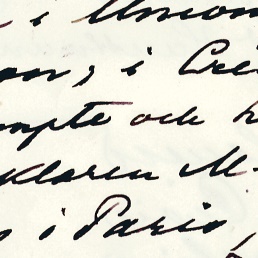 i Union
i Cré
mpte och h
klaren M-
i Paris,